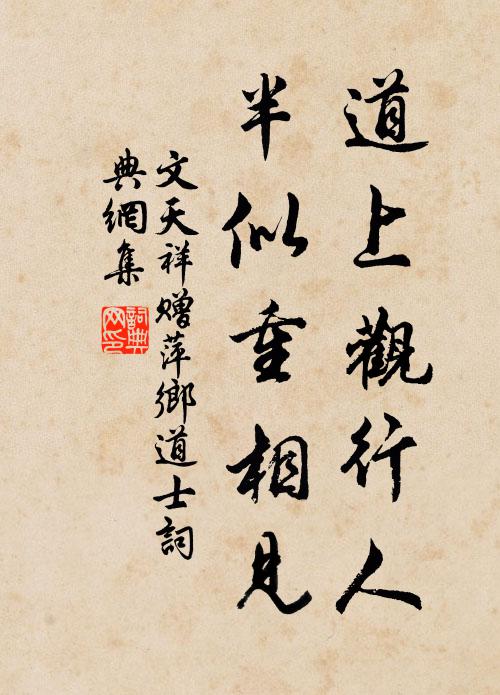 道上觀行人
半似重相見
文天祥贈萍鄉道士詞
典網集
詞典网印